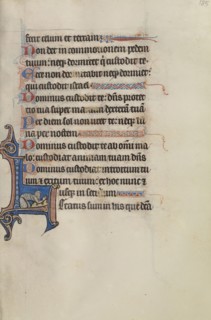 fecit celum et terram
Non det in commotionem pedem
tuum: neq; dormitet q custodit te
Ecce non dormitabit neq; dormiet:
qui custodit israel
Dominus custodit te: dns protec
tio tua super manum dexteram tuā
Per diem sol non uret te: neq; lu
na per noctem
Dominus custodit te ab omni ma
lo: custodiat animam tuam dns
Dominus custodiat introitum tu
um & exitum tuum: ex hoc nunc &
usq; in seculum
Letatus sum in his que dcā